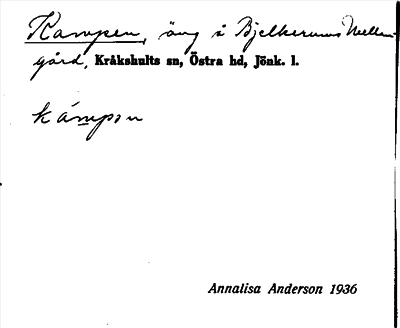 Kampen, äng i Bjelkerums Mellan-
gård, Kråkshults sn, Östra hd, Jönk. l.
kámpən
Annalisa Anderson 1936